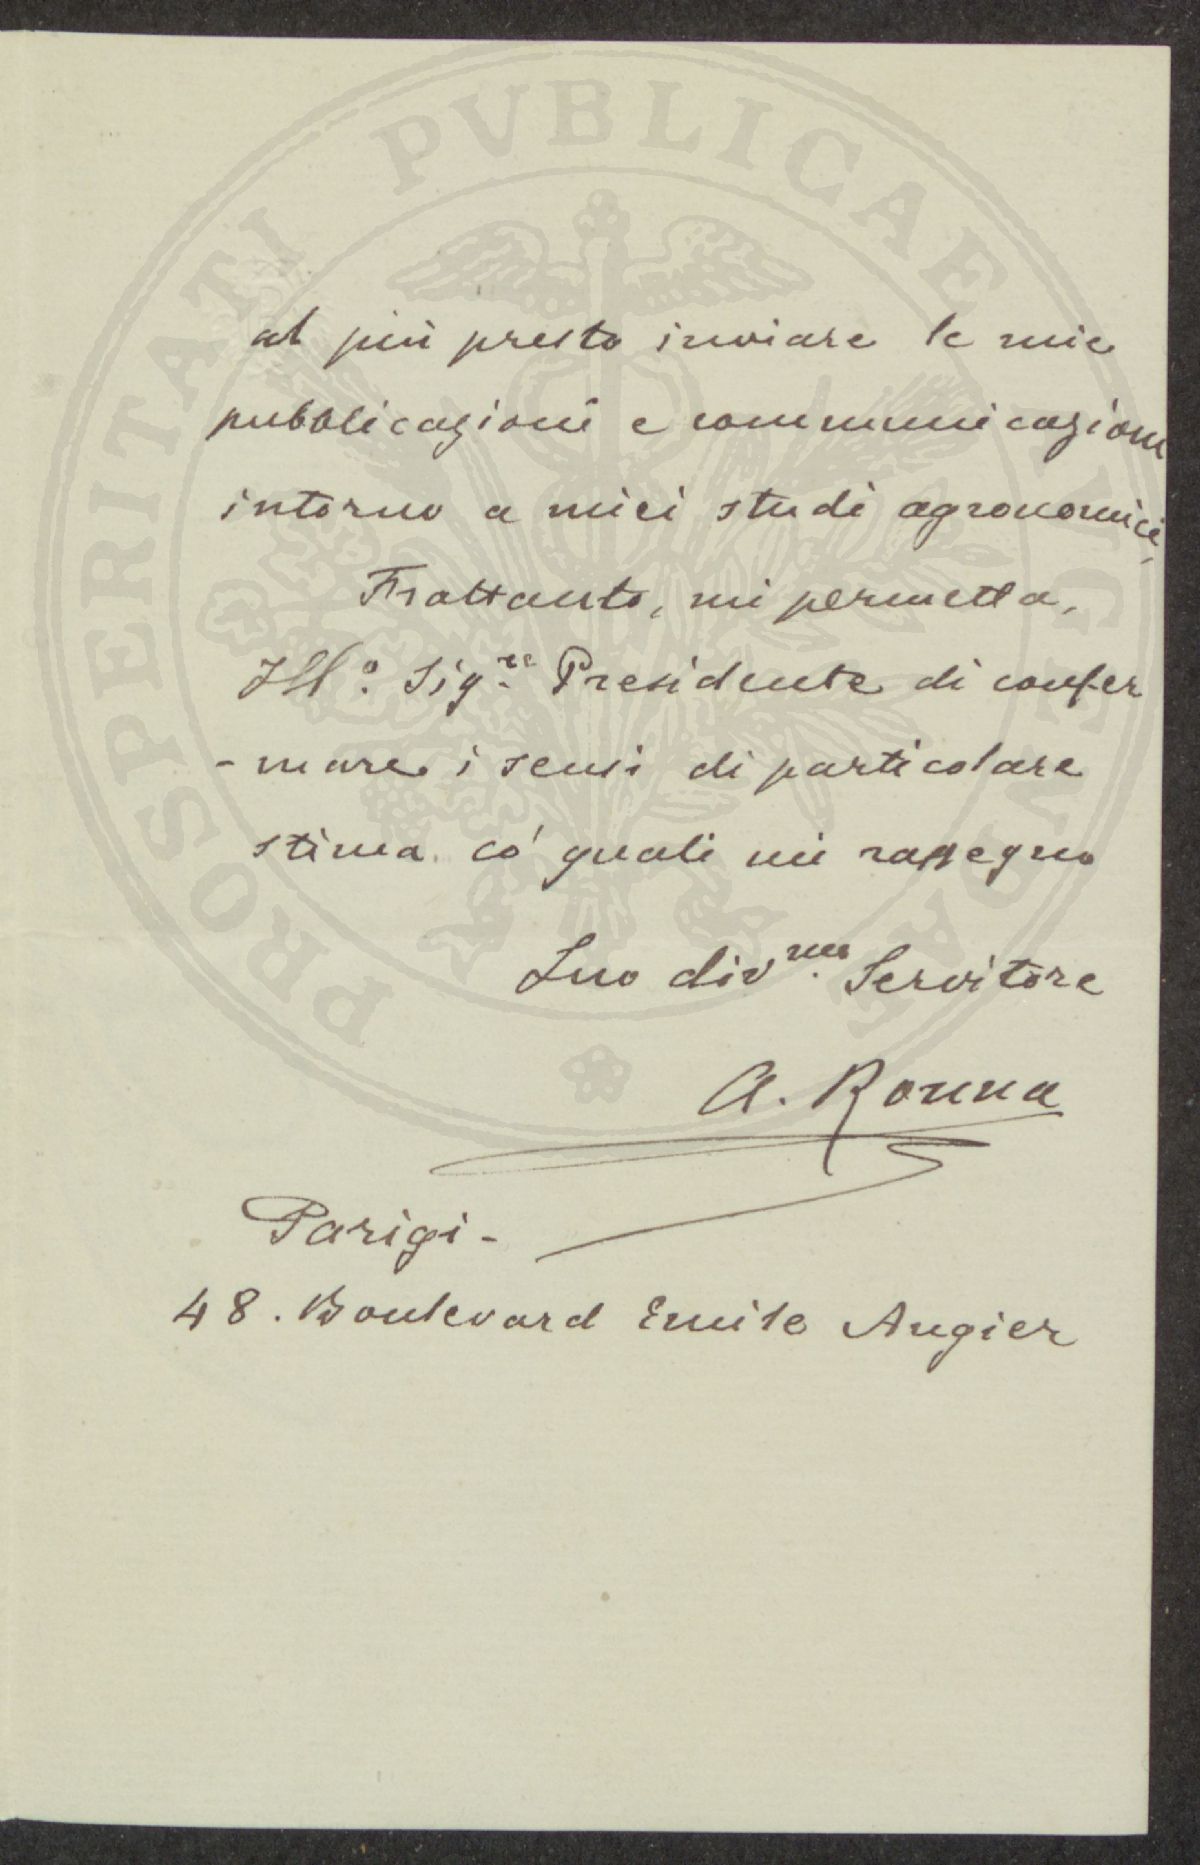 al più presto inviare le mie
pubblicazioni e communicazioni
intorno a miei studi agronomici,
Frattanto, mi permetta,
Ill.º Sig.re Presidente di confer
-mare i sensi di particolare
stima có quali mi rassegno
Suo div.mo Servitore
A. Ronna
Parigi-
48. Boulevard Emile Augier
PROSPERITATI PVBLICAE AVGENDAE